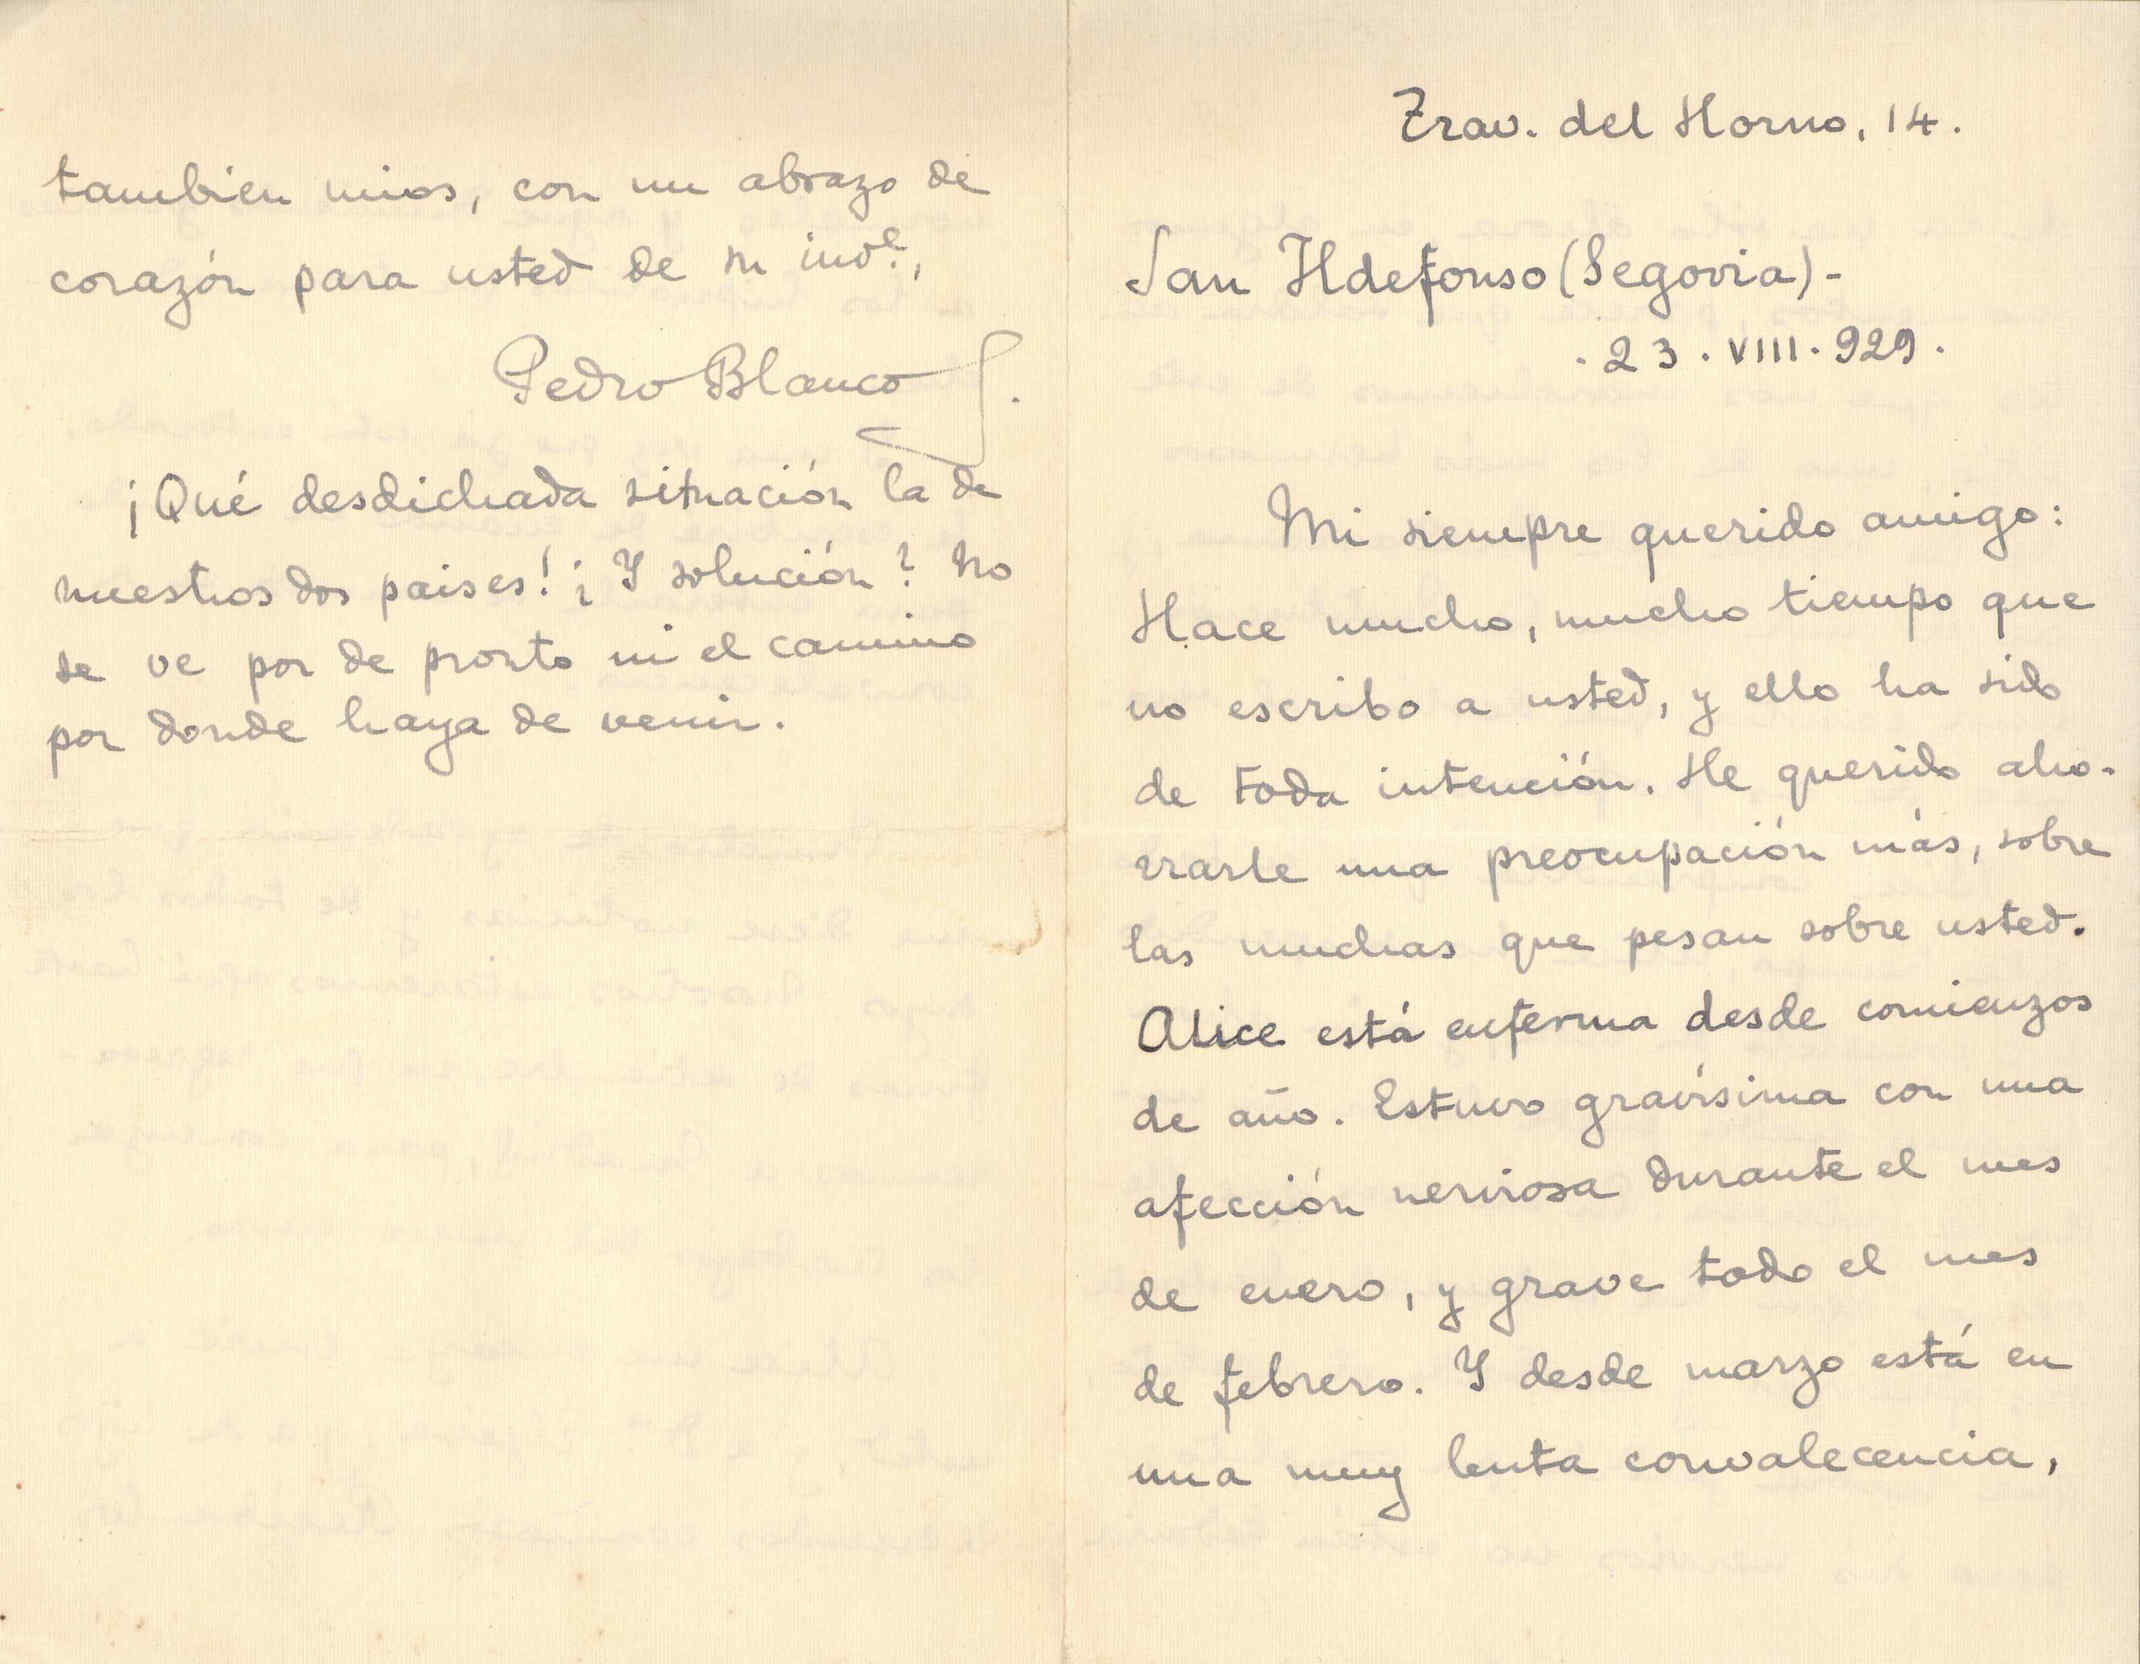 Trav. del Horno, 14.
San Ildefonso (Segovia)-
.23.VIII.929.
Mi siempre querido amigo:
Hace mucho, mucho tiempo que
no escribo a usted, y ello ha sido
de toda intención. He querido aho-
rrarle una preocupación más, sobre
las muchas que pesan sobre usted.
Alice está enferma desde comienzos
de año. Estuvo gravísima con una
afección nerviosa durante el mes
de enero, y grave todo el mes
de febrero. Y desde marzo está en
una muy lenta convalecencia,
tambien mios, con un abrazo de
corazón para usted de su inve.,
Pedro Blanco S.
¡Qué desdichada situación la de
nuestros dos paises! ¿Y solución? No
se ve por de pronto ni el camino
por donde haya de venir.